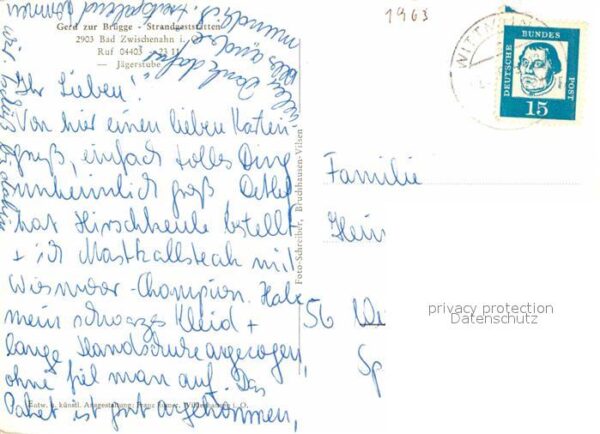 1963
Gerd zur Brügge - Strandgaststätten
2903 Bad Zwischenahn i. O.
Ruf 04403 - 23 11
Jägerstube
Ihr Lieben!
Von hier einen lieben Karten-
gruß, einfach tolles Ding
unheimlich groß Detlef
hat Hirschkeule bestellt
+ ich Mastkalbsteak mit
Wiesmoor-Champion. Habe
mein schwarzes Kleid +
lange Handschuhe angezogen,
ohne fiel man auf. Das
Paket ist gut angekommen,
vielen Dank dafür
alles andere
mündlich.
Entw. u. künstl. Ausgestaltung: Franz
Foto-Schreiber, Bruchhausen-Vilsen
WITTM
DEUTSCHE BUNDES POST
15
Familie
Hein
56 Wu
Sp
privacy protection
Datenschutz